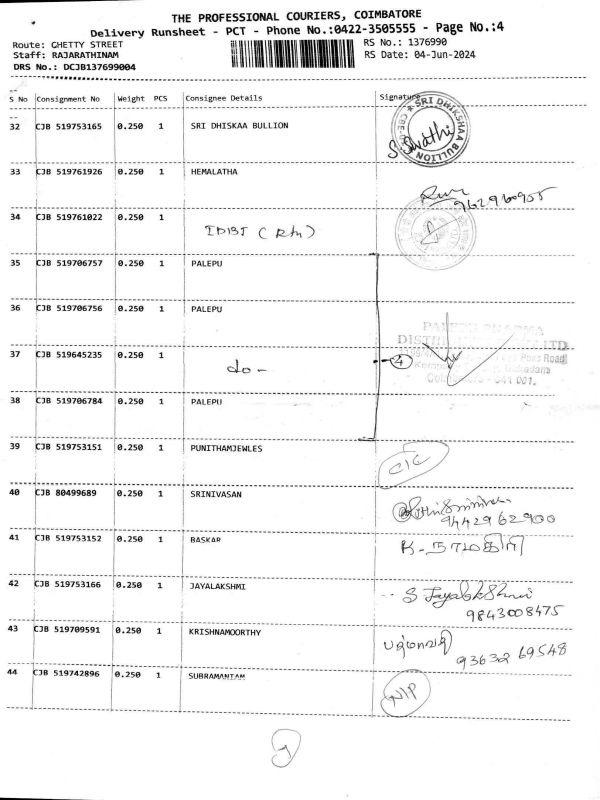 THE PROFESSIONAL COURIERS, COIMBATORE
Delivery Runsheet - PCT - Phone No.:0422-3505555 - Page No.:4
Route: GHETTY STREET
RS No.: 1376990
Staff: RAJARATHINAM
RS Date: 04-Jun-2024
DRS No.: DCJB137699004
S No Consignment No Weight PCS Consignee Details Signature
32 CJB 519753165 0.250 1 SRI DHISKAA BULLION
SRI DHIKSHAA BULLION
S Swathi
33 CJB 519761926 0.250 1 HEMALATHA
34 CJB 519761022 0.250 1 IDIBI (Rtn)
35 CJB 519706757 0.250 1 PALEPU
36 CJB 519706756 0.250 1 PALEPU
37 CJB 519645235 0.250 1 do-
4
38 CJB 519706784 0.250 1 PALEPU
39 CJB 519753151 0.250 1 PUNITHAMJEWLES
40 CJB 80499689 0.250 1 SRINIVASAN
9442962900
41 CJB 519753152 0.250 1 BASKAR
42 CJB 519753166 0.250 1 JAYALAKSHMI
S Jayalakshmi
9843008475
43 CJB 519709591 0.250 1 KRISHNAMOORTHY
93632 69548
44 CJB 519742896 0.250 1 SUBRAMANIAM
N/P